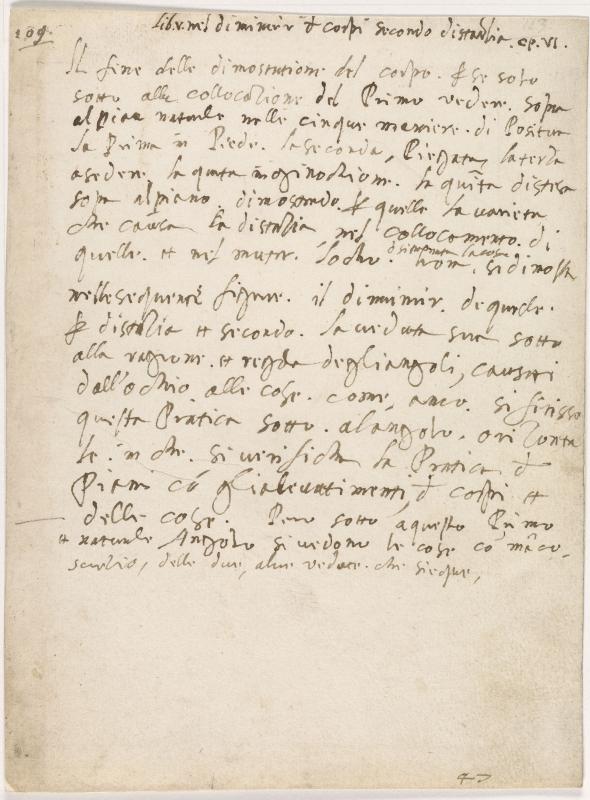 109.
Lib. v. nel diminuir d corpi secondo distantia. cp. VI.
Il fine delle dimostratione del corpo. se solo
sotto alla collocatione del Primo vedere. sopra
al piano naturale nelle cinque maniere. di Positura
la Prima in Piede. la seconda, Piegata, la terza
a sedere. la quarta in ginochione. la quinta distesa
sopra al piano. dimostrando quelle la varieta
che causa la distantia nel collocamento. di
quelle. et nel mutar. locho. si dimostra
nelle sequenti figure. il diminuir. de quelle.
distantia et secondo. la veduta sua sotto
alla ragione. et regola degli angoli, causati
dall'ochio alle cose. come, anco. si
questa Pratica sotto. al angolo. orizonta
le. in che. si verificha la Pratica d
Piani cō gli alevatimenti, d corpi et
delle cose. Pero sotto, a questo Primo
et naturale Angolo si vedono le cose cō
delle due, altre vedute. che sieque,
47